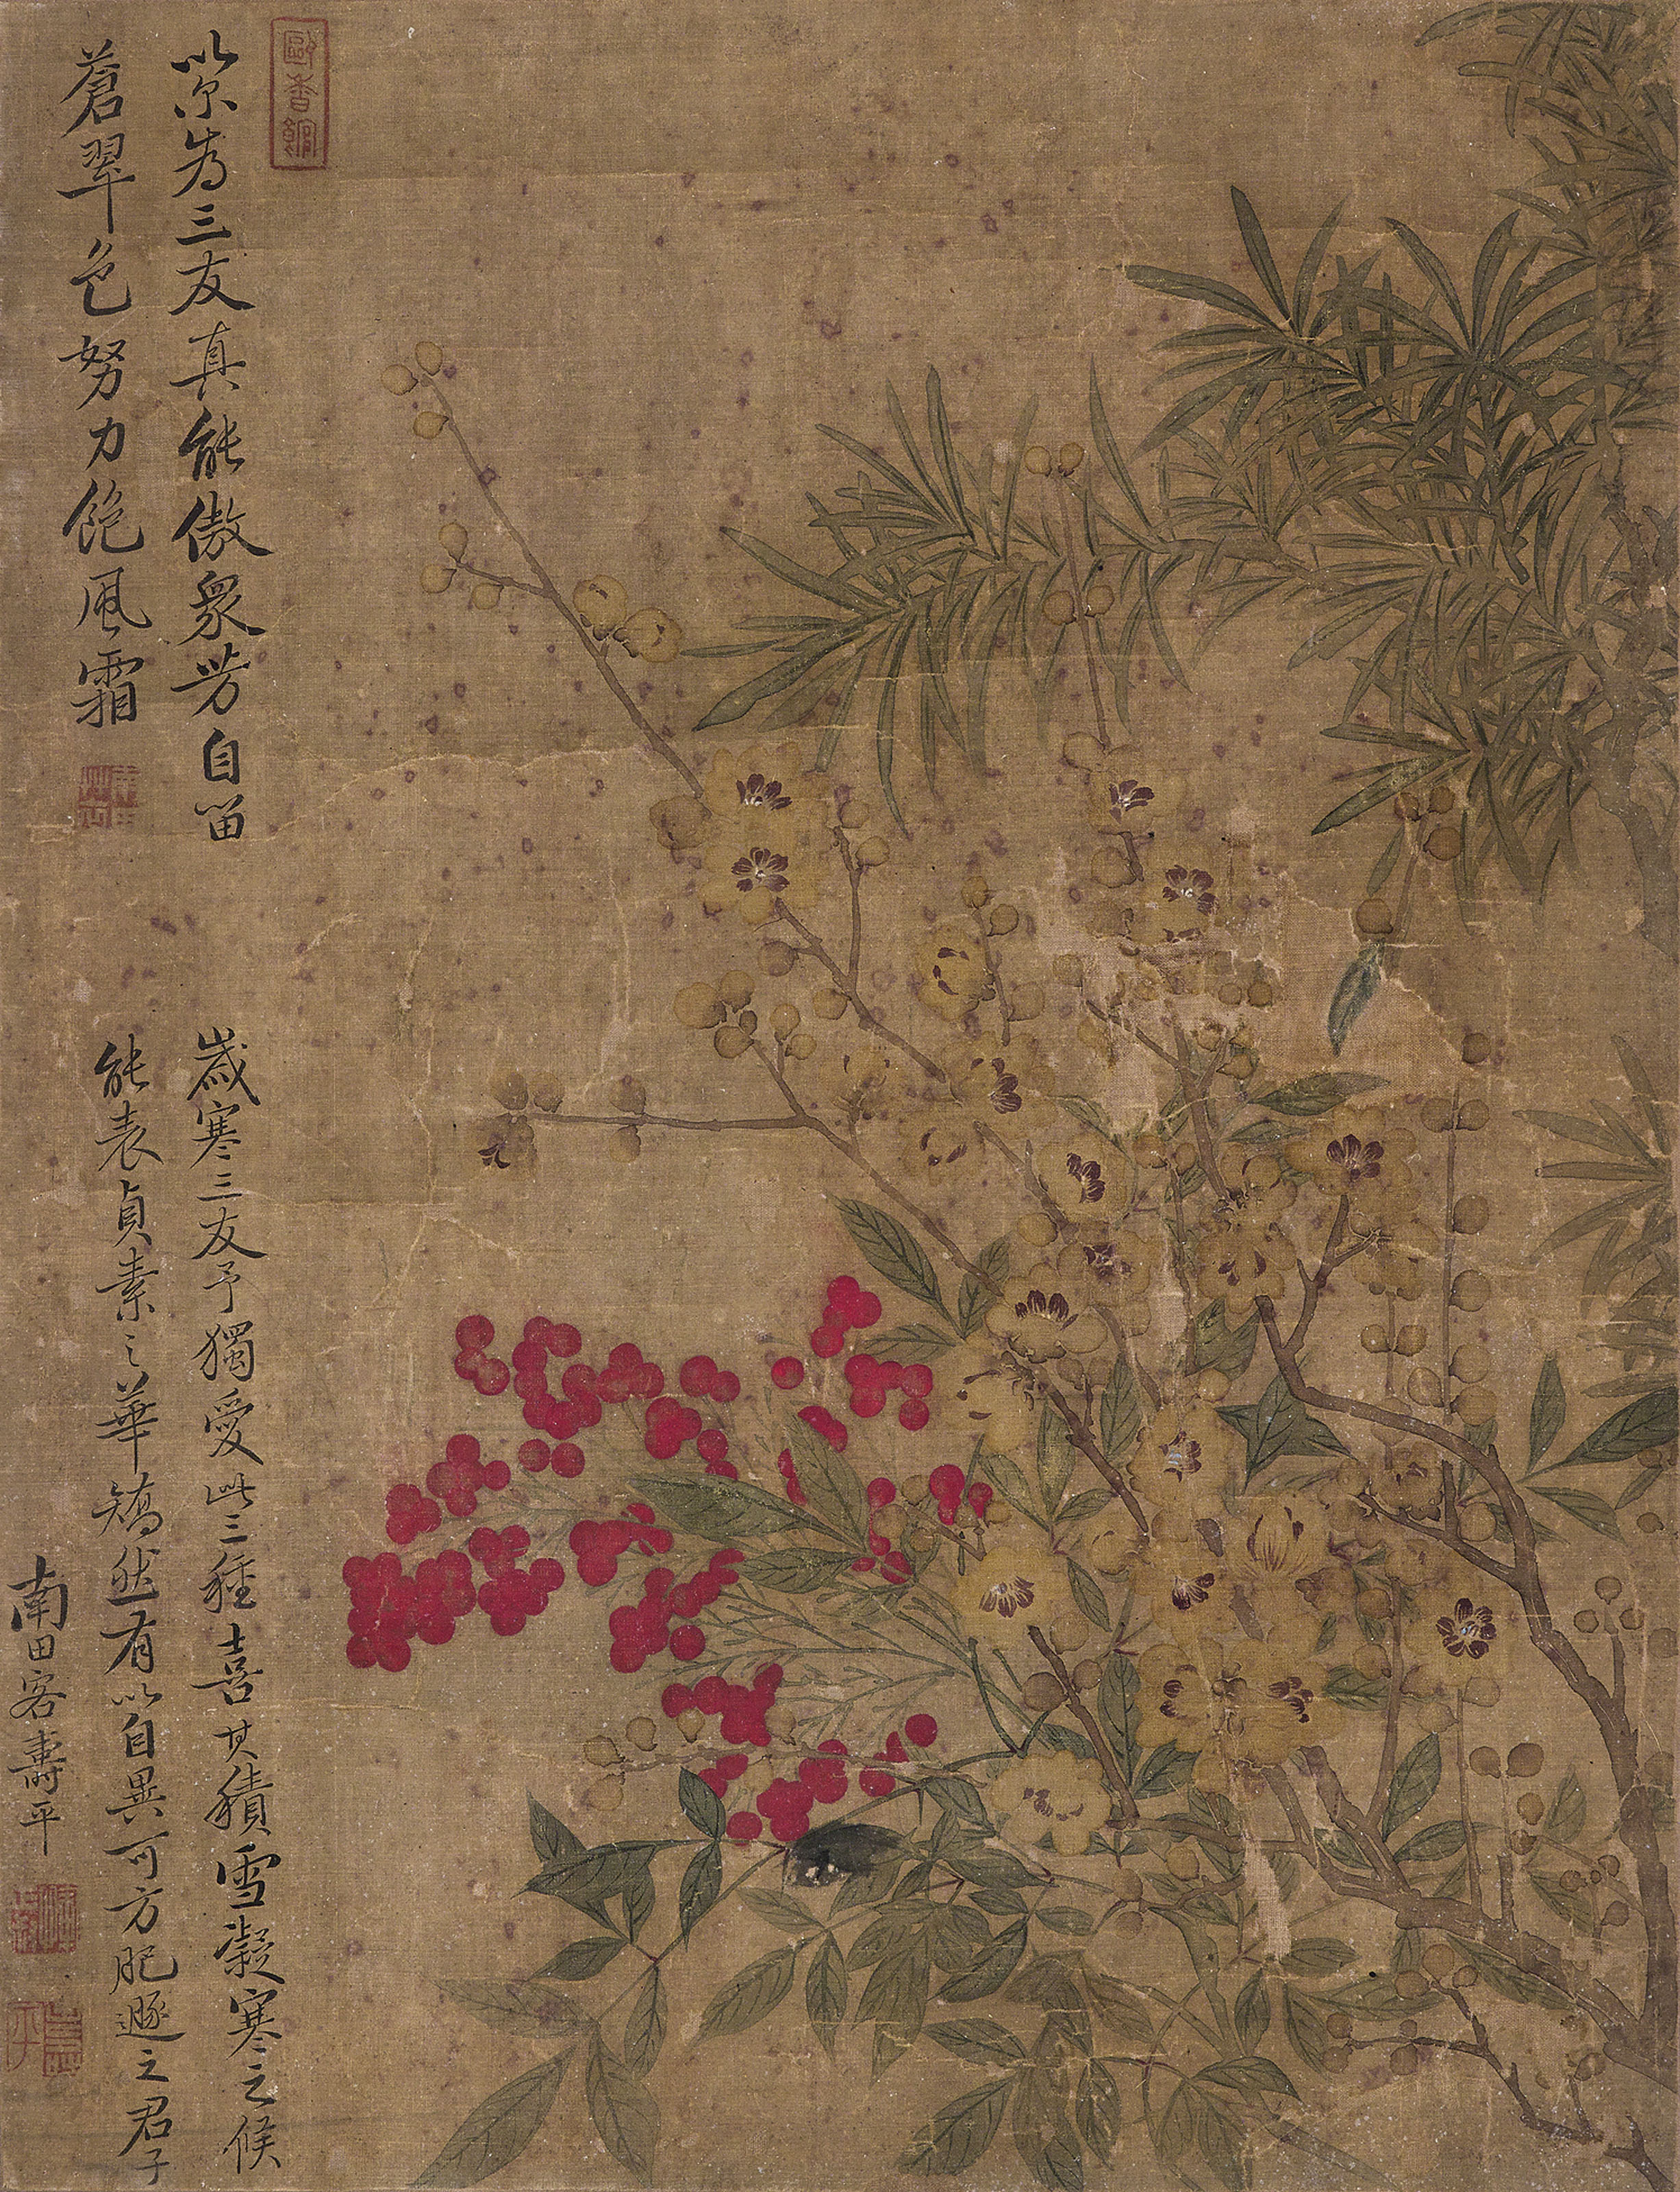 甌香館
以尒為三友真能傲衆芳自留
蒼翠色努力飽風霜
歲寒三友予獨愛此三種喜其積雪凝寒之候
能表貞素之華矯然有以自異可方肥遯之君子
南田客壽平